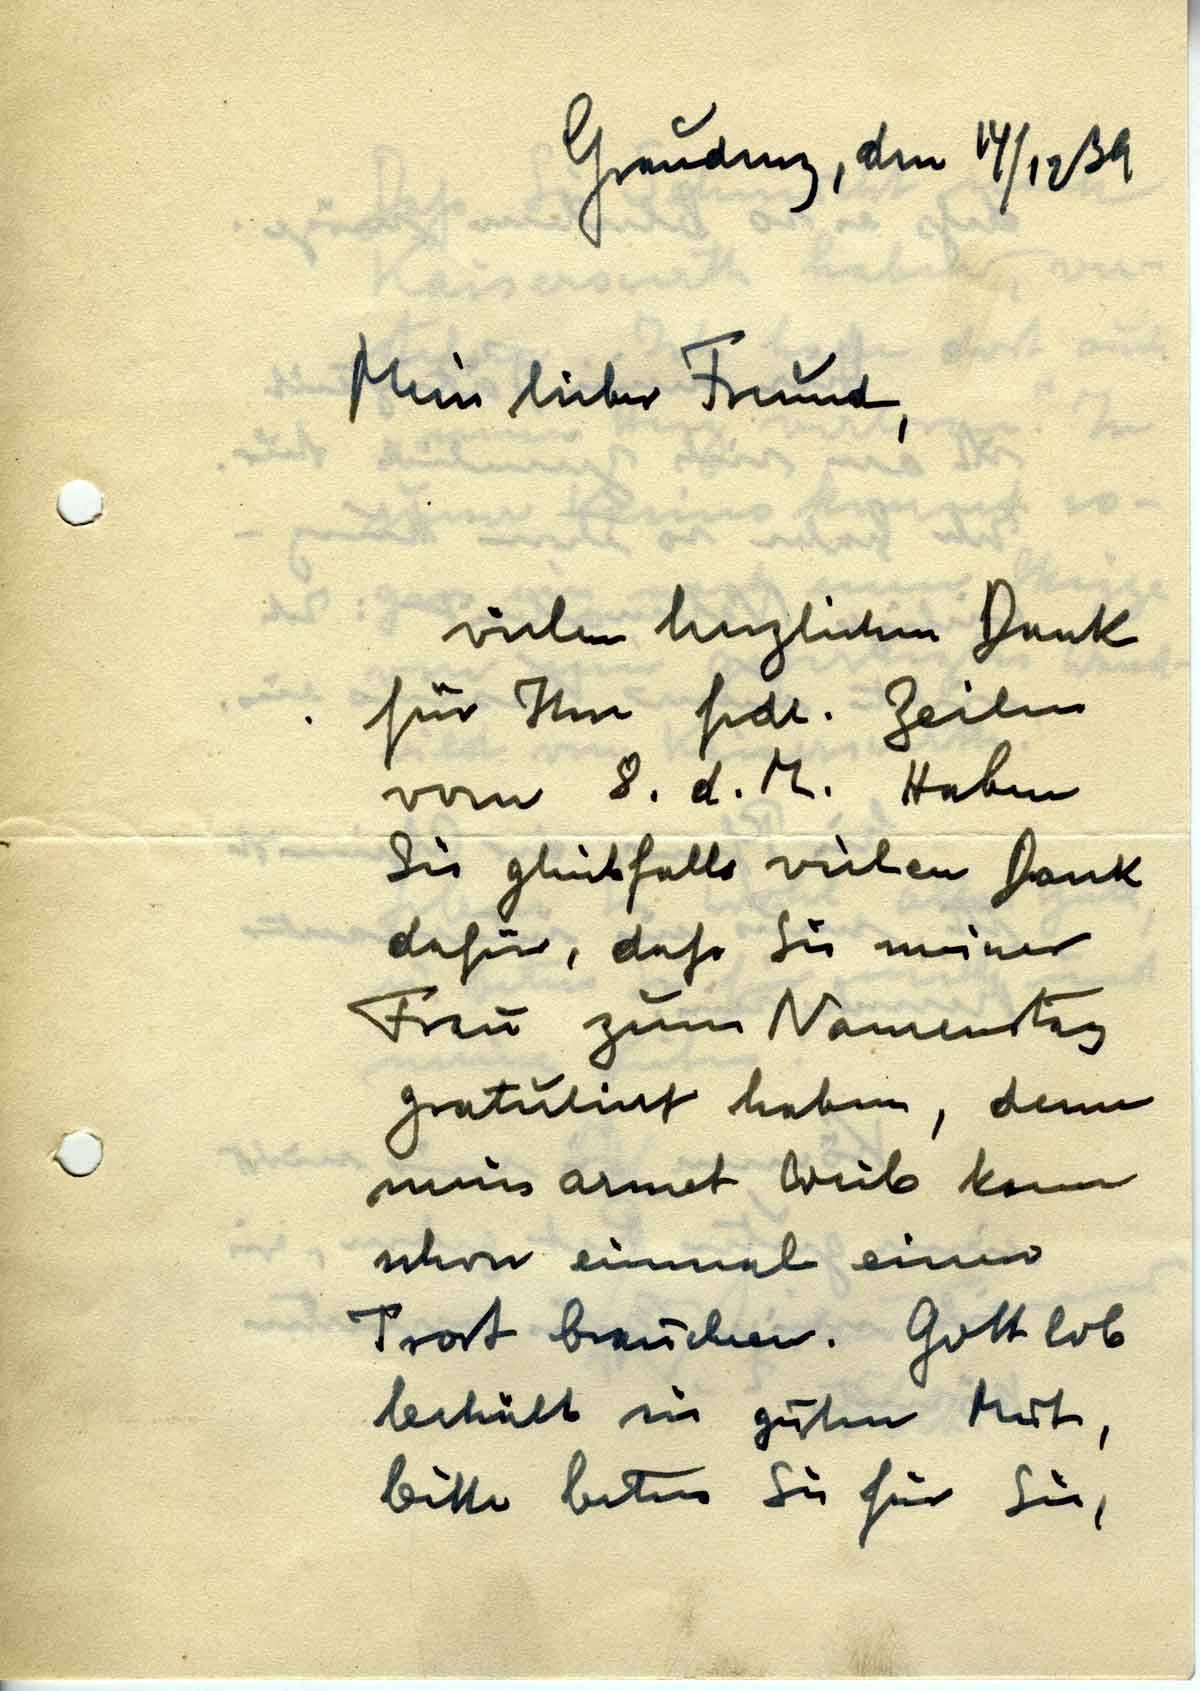 Graudenz, den 14/12 39
Mein lieber Freund,
vielen herzlichen Dank
für Ihre frdl. Zeilen
vom 8. d. M. Haben
Sie gleichfalls vielen Dank
dafür, dass Sie meiner
Frau zum Namenstag
gratuliert haben, denn
mein armes Weib kann
schon einmal einen
Trost brauchen. Gott lob
behält sie guten Mut,
bitte beten Sie für Sie,